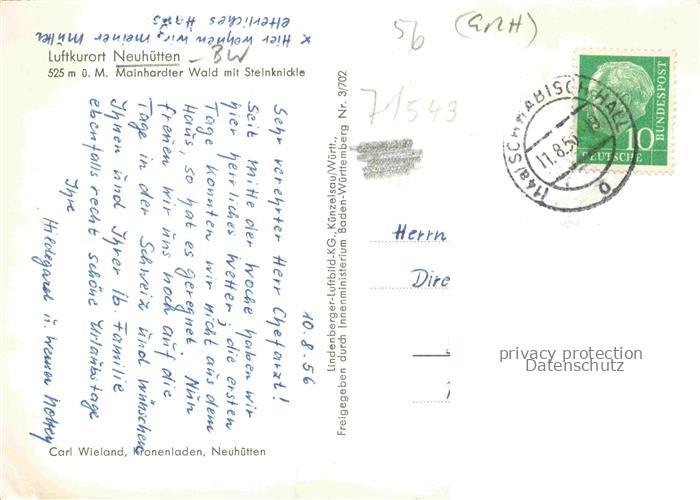 x Hier wohnen wir, meiner Mutter
elterliches Haus
Luftkurort Neuhütten - BW
525 m ü. M. Mainhardter Wald mit Steinknickle
10.8.56
Sehr verehrter Herr Chefarzt!
Seit Mitte der Woche haben wir
hier herrliches Wetter, die ersten
Tage konnten wir nicht aus dem
Haus, so hat es geregnet. Nun
freuen wir uns noch auf die
Tage in der Schweiz und wünschen
Ihnen und Ihrer lb. Familie
ebenfalls recht schöne Urlaubstage
Ihre
Hildegard u. Werner
Carl Wieland, Kronenladen, Neuhütten
Lindenberger-Luftbild-KG., Künzelsau/Württ.,
Freigegeben durch Innenministerium Baden-Württemberg Nr. 3/702
56
71543
(14a) SCHWÄBISCH HALL
11.8.56
DEUTSCHE
BUNDESPOST
10
Herrn
Dire
privacy protection
Datenschutz